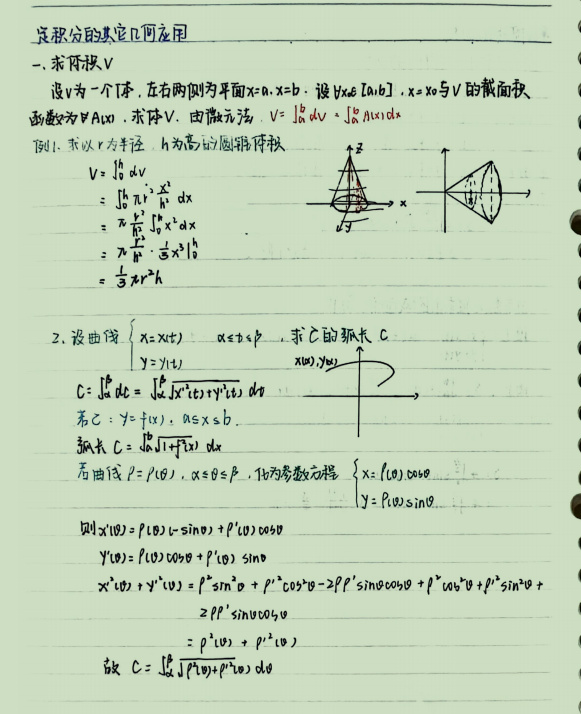 定积分的其它几何应用
一、求体积V
设V为一个体,左右两侧为平面x=a,x=b.设∀x₀∈[a,b],x=x₀与V的截面积
函数为A(x),求体V.由微元法 V=∫ₐᵇdV=∫ₐᵇA(x)dx
例1.求以r为半径,h为高的圆锥体积
V=∫₀ʰdV
=∫₀ʰπr²x²/h² dx
=π r²/h² ∫₀ʰx²dx
=π r²/h² · 1/3 x³|₀ʰ
=1/3 πr²h
z
x
y
2、设曲线 { x=x(t) α≤t≤β ,求C的弧长C
y=y(t)
x(α),y(α)
C=∫_α^β dC=∫_α^β √(x'²(t)+y'²(t))
若C:y=f(x),a≤x≤b.
弧长C=∫ₐᵇ√(1+f'²(x)) dx
若曲线ρ=ρ(θ),α≤θ≤β,化为参数方程 { x=ρ(θ)cosθ
y=ρ(θ)sinθ
则x'(θ)=ρ(θ)(-sinθ)+ρ'(θ)cosθ
y'(θ)=ρ(θ)cosθ+ρ'(θ)sinθ
x'²(θ)+y'²(θ)=ρ²sin²θ+ρ'²cos²θ-2ρρ'sinθcosθ+ρ²cos²θ+ρ'²sin²θ+
2ρρ'sinθcosθ
=ρ²(θ)+ρ'²(θ)
故 C=∫_α^β √(ρ²(θ)+ρ'²(θ)) dθ